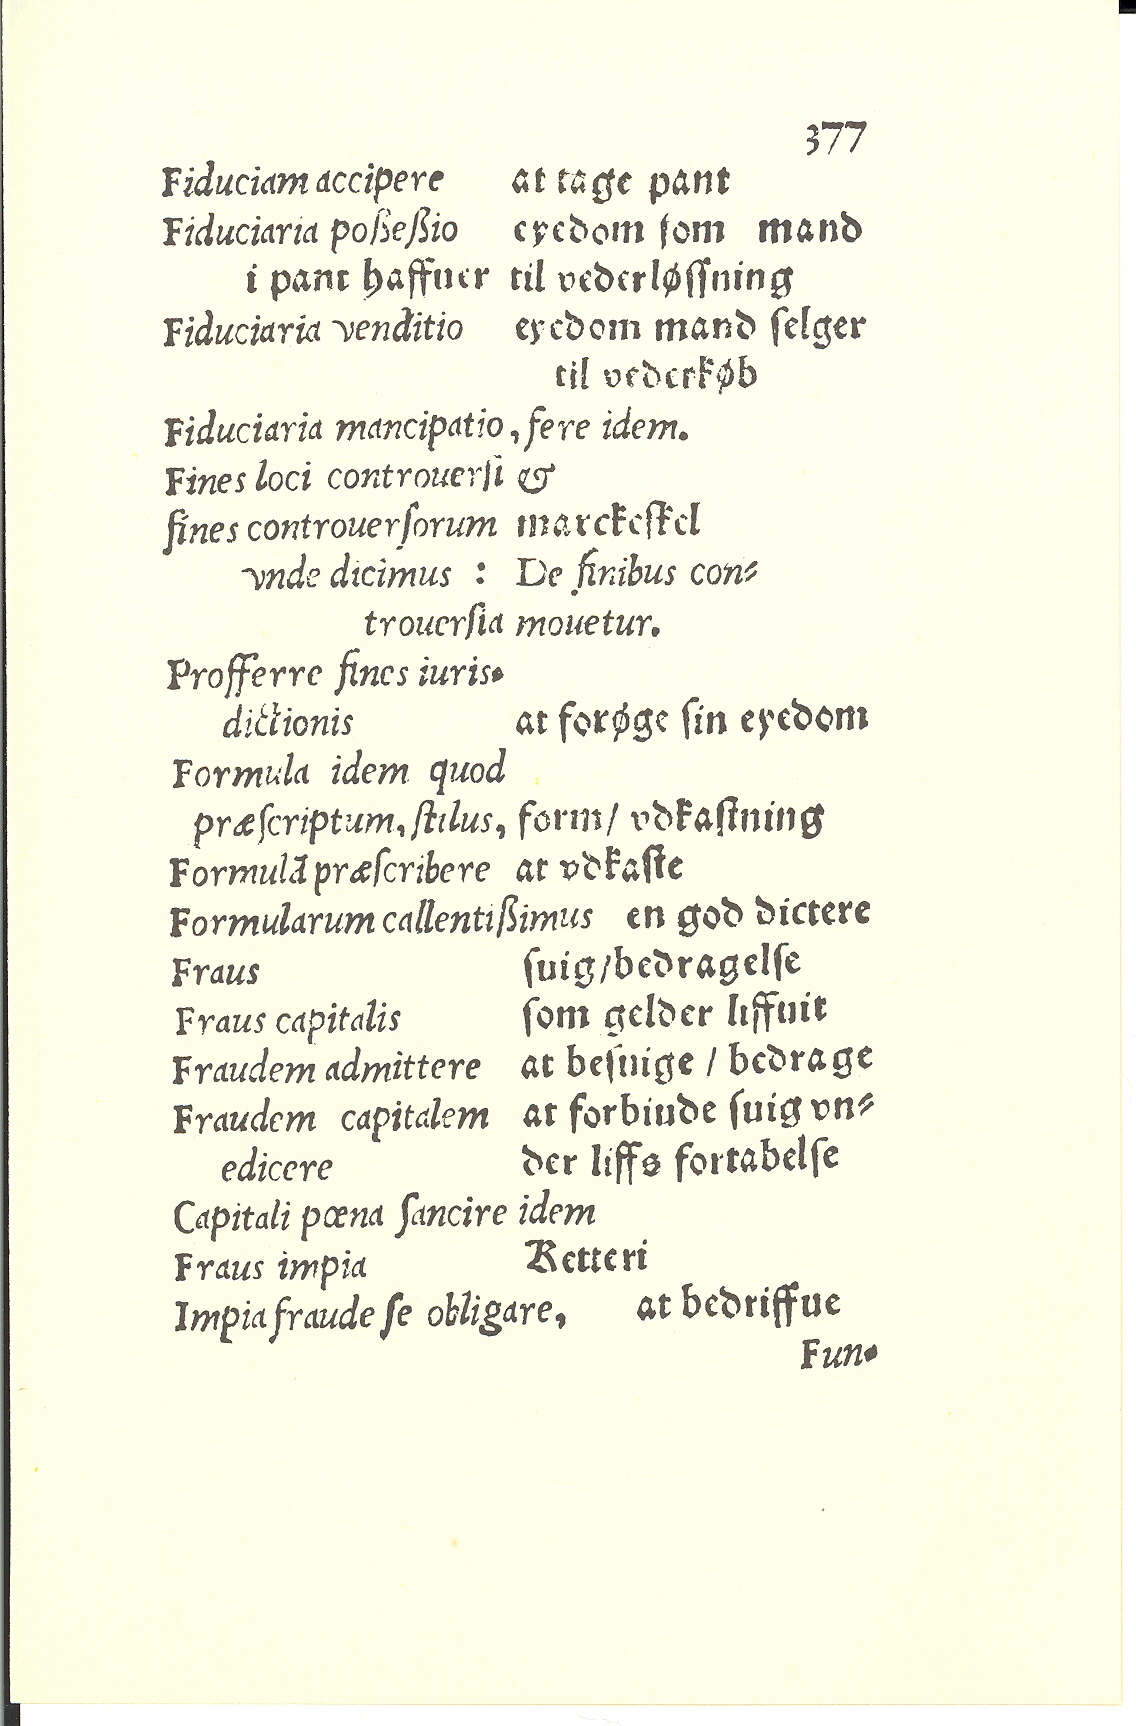 377
Fiduciam accipere at tage pant
Fiduciaria poßeßio eyedom ſom mand
i pant haffuer til vederløſſning
Fiduciaria venditio eyedom mand ſelger
til vederkøb
Fiduciaria mancipatio, fere idem.
Fines loci controuerſi &
fines controuerſorum marckeſkel
vnde dicimus : De finibus con⸗
trouerſia mouetur.
Profferre fines iuris⸗
dictionis at forøge ſin eyedom
Formula idem quod
præſcriptum, ſtilus, form/ vdkaſtning
Formulã præſcribere at vdkaſte
Formularum callentißimus en god dictere
Fraus ſuig/bedragelſe
Fraus capitalis ſom gelder liffuit
Fraudem admittere at beſuige / bedrage
Fraudem capitalem at forbiude ſuig vn⸗
edicere der liffs fortabelſe
Capitali pœna ſancire idem
Fraus impia Ketteri
Impia fraude ſe obligare, at bedriffue
Fun⸗